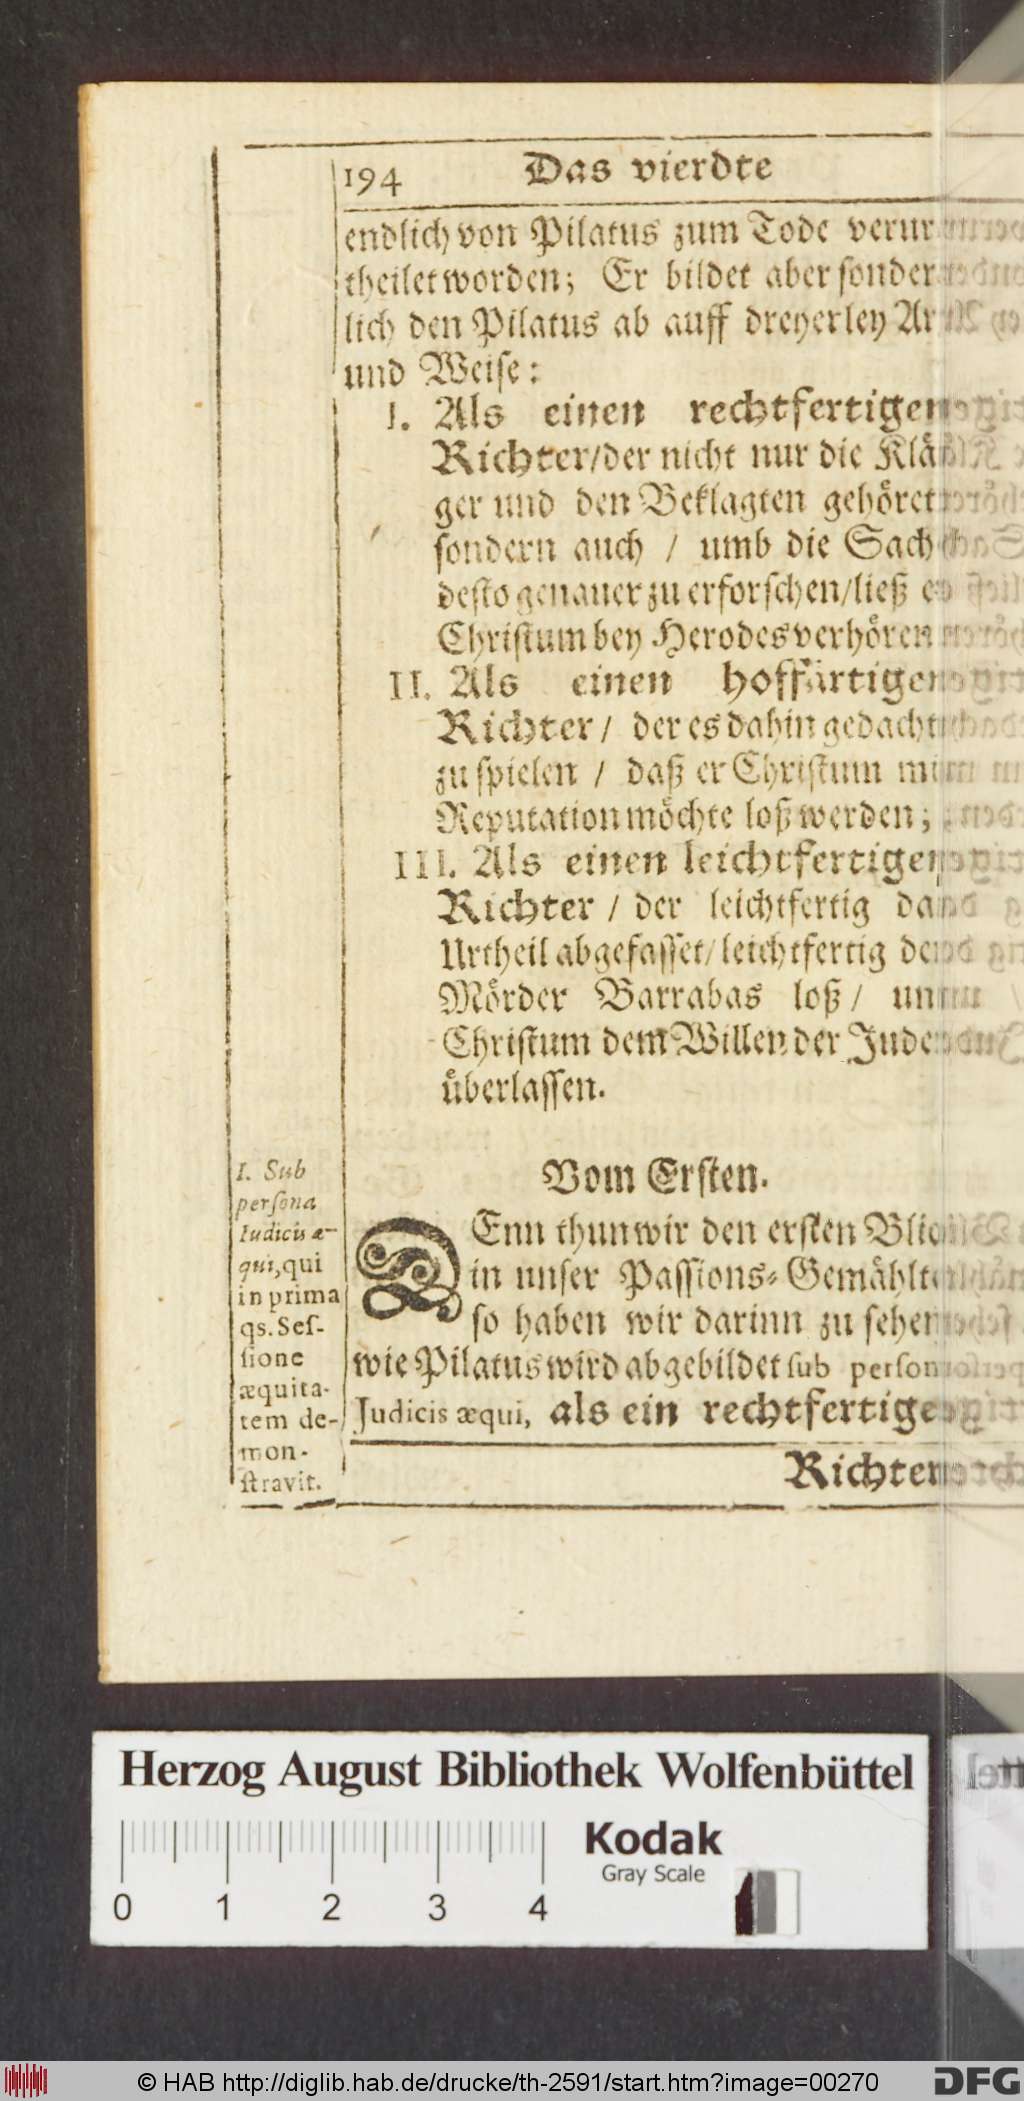 194 Das vierdte
endlich von Pilatus zum Tode verur
theilet worden; Er bildet aber sonder
lich den Pilatus ab auff dreyerley Ar
und Weise:
I. Als einen rechtfertigen
Richter/der nicht nur die Klä
ger und den Beklagten gehöret
sondern auch / umb die Sach
desto genauer zu erforschen/ließ e
Christum bey Herodes verhören
II. Als einen hoffärtigen
Richter / der es dahin gedacht
zu spielen / daß er Christum mi
Reputation möchte loß werden;
III. Als einen leichtfertigen
Richter / der leichtfertig da
Urtheil abgefasset/leichtfertig de
Mörder Barrabas loß / un
Christum dem Willen der Jude
überlassen.
Vom Ersten.
DEnn thun wir den ersten Blic
in unser Passions-Gemählt
so haben wir darinn zu sehen
wie Pilatus wird abgebildet sub person
Judicis æqui, als ein rechtfertige
Richter
I. Sub
persona
Iudicis æ-
qui, qui
in prima
qs. Ses-
sione
æquita-
tem de-
mon-
stravit.
Herzog August Bibliothek Wolfenbüttel
Kodak
Gray Scale
0 1 2 3 4
© HAB http://diglib.hab.de/drucke/th-2591/start.htm?image=00270
DFG